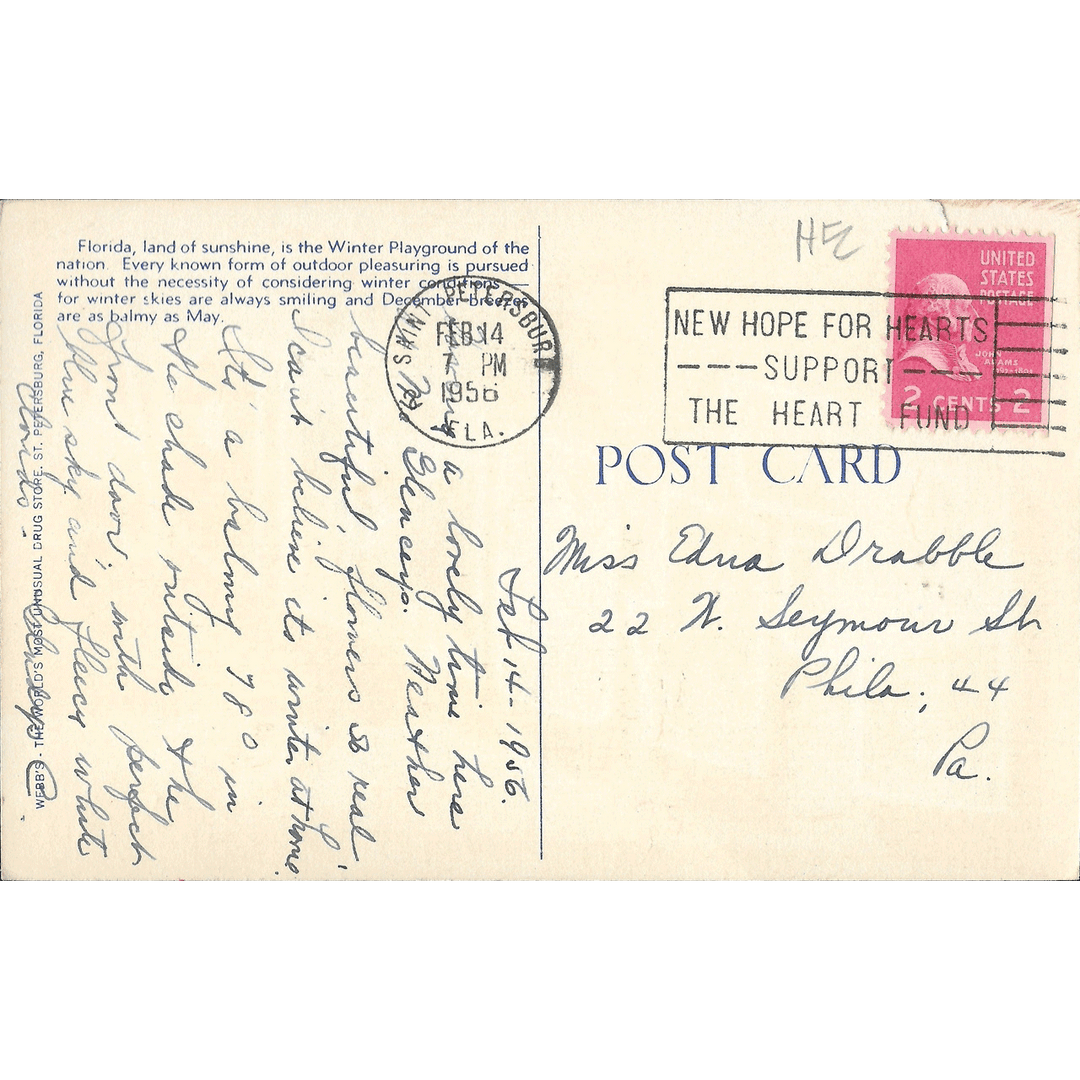 Florida, land of sunshine, is the Winter Playground of the
nation. Every known form of outdoor pleasuring is pursued
without the necessity of considering winter conditions
for winter skies are always smiling and December breezes
are as balmy as May.
WEBB'S - THE WORLD'S MOST UNUSUAL DRUG STORE, ST. PETERSBURG, FLORIDA
Feb 14 - 1956.
a lovely time here
Weather
beautiful, flowers so real
I can't believe its winter at home.
It's a balmy 78° in
the shade outside the
front door, with perfect
blue sky and fleecy white
clouds.
SAINT PETERSBURG
FEB 14
7 PM
1956
FLA.
HFC
UNITED
STATES
POSTAGE
JOHN
ADAMS
2 CENTS 2
NEW HOPE FOR HEARTS
----SUPPORT----
THE HEART FUND
POST CARD
Miss Edna Drabble
22 W. Seymour St
Phila, 44
Pa.